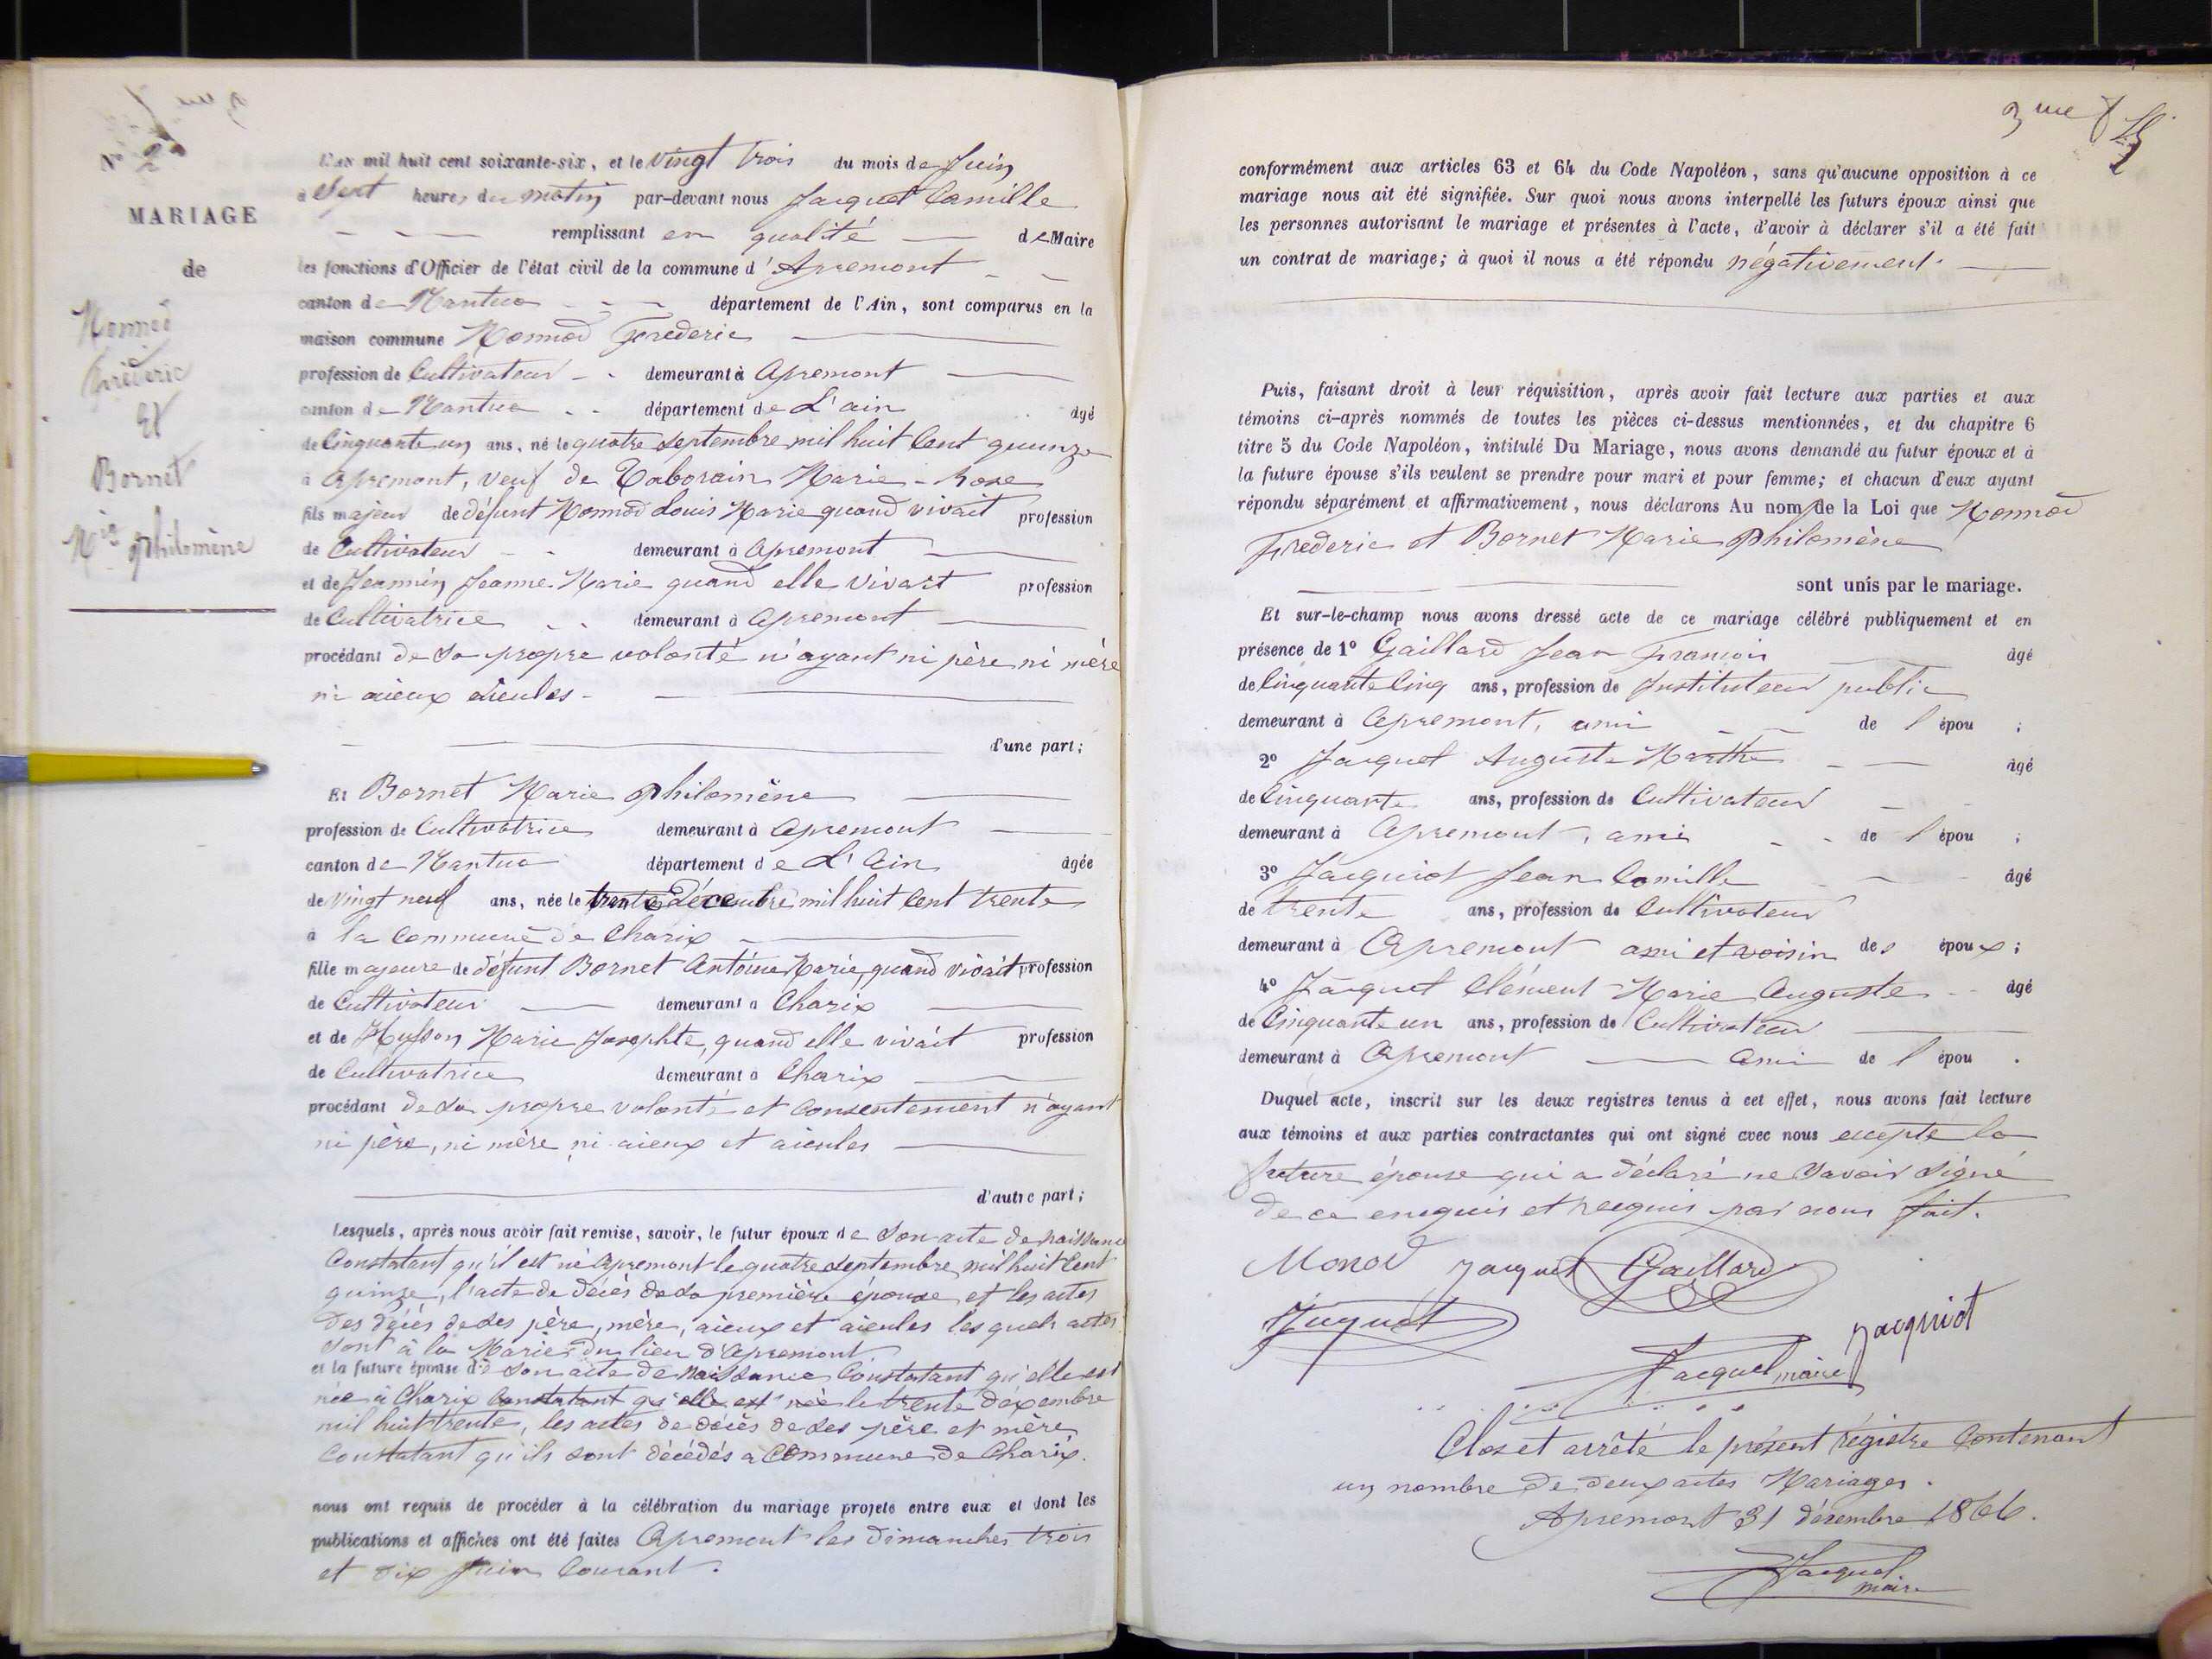 N° 2
MARIAGE
de
Monnod
Fréderic
Et
Bornet
Mie philomène
L'AN mil huit cent soixante-six, et le Vingt trois du mois de Juin
à Sept heures du matin par-devant nous Jacquet Camille
remplissant en qualité de Maire
les fonctions d'Officier de l'état civil de la commune d'Apremont
canton de Nantua département de l'Ain, sont comparus en la
maison commune Monnod Frederic
profession de Cultivateur demeurant à Apremont
canton de Nantua département de L'ain âgé
de Cinquante un ans, né le quatre septembre mil huit Cent quinze
à Apremont, veuf de Taborain Marie-Rose
fils majeur de défunt Monnod Louis Marie quand vivait profession
de Cultivateur demeurant à Apremont
et de Jeannin Jeanne Marie quand elle vivait profession
de Cultivatrice demeurant à Apremont
procédant de sa propre volonté n'ayant ni père ni mère
ni aieux aieules
d'une part;
Et Bornet Marie philomène
profession de Cultivatrice demeurant à Apremont
canton de Nantua département de L'Ain âgée
de Vingt neuf ans, née le trente Décembre mil huit Cent trente
à la Commune de Charix
fille majeure de défunt Bornet Antoine Marie, quand vivait profession
de Cultivateur demeurant à Charix
et de Husson Marie Josephte, quand elle vivait profession
de Cultivatrice demeurant à Charix
procédant de sa propre volonté et Consentement n'ayant
ni père, ni mère ni aieux et aieules
d'autre part;
Lesquels, après nous avoir fait remise, savoir, le futur époux de son acte de naissance
Constatant qu'il est né Apremont le quatre septembre mil huit Cent
quinze, l'acte de décès de sa première épouse et les actes
des décès de ses père, mère, aieux et aieules les quels actes
sont à la Marie du lieu d'Apremont
et la future épouse de son acte de naissance Constatant qu'elle est
née à Charix Constatant qu'elle est née le trente décembre
mil huit trente, les actes de décès de ses père et mère
Constatant qu'ils sont décédés a Commune de Charix.
nous ont requis de procéder à la célébration du mariage projeté entre eux et dont les
publications et affiches ont été faites Apremont les dimanches trois
et dix Juin Courant.
3me
conformément aux articles 63 et 64 du Code Napoléon, sans qu'aucune opposition à ce
mariage nous ait été signifiée. Sur quoi nous avons interpellé les futurs époux ainsi que
les personnes autorisant le mariage et présentes à l'acte, d'avoir à déclarer s'il a été fait
un contrat de mariage; à quoi il nous a été répondu négativement.
Puis, faisant droit à leur réquisition, après avoir fait lecture aux parties et aux
témoins ci-après nommés de toutes les pièces ci-dessus mentionnées, et du chapitre 6
titre 5 du Code Napoléon, intitulé Du Mariage, nous avons demandé au futur époux et à
la future épouse s'ils veulent se prendre pour mari et pour femme; et chacun d'eux ayant
répondu séparément et affirmativement, nous déclarons Au nom de la Loi que Monnod
Frederic et Bornet Marie philomène
sont unis par le mariage.
Et sur-le-champ nous avons dressé acte de ce mariage célébré publiquement et en
présence de 1° Gaillard Jean François âgé
de Cinquante Cinq ans, profession de Instituteur public
demeurant à Apremont, ami de l épou ;
2° Jacquet Auguste Marthe âgé
de Cinquante ans, profession de Cultivateur
demeurant à Apremont, ami de l épou ;
3° Jacquiot Jean Camille âgé
de trente ans, profession de Cultivateur
demeurant à Apremont ami et voisin des époux;
4° Jacquet Clément Marie Auguste âgé
de Cinquante un ans, profession de Cultivateur
demeurant à Apremont ami de l épou .
Duquel acte, inscrit sur les deux registres tenus à cet effet, nous avons fait lecture
aux témoins et aux parties contractantes qui ont signé avec nous excepte la
future épouse qui a déclaré ne savoir signé
de ce enequis et requis par nous fait.
Monod Jacquet Gaillard
Juquet Jacquiot
Jacquet maire
Clos et arrêté le présent régistre Contenant
un nombre de deux actes Mariages.
Apremont 31 décembre 1866.
Jacquet
maire